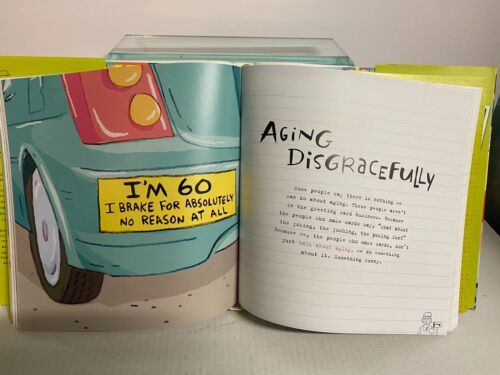 I'M 60
I BRAKE FOR ABSOLUTELY
NO REASON AT ALL
AGING
DISGRACEFULLY
Some people say there is nothing we
can do about aging. These people aren't
in the greeting card business. Because
the people who make cards say, "What about
the joking, the joshing, the poking fun?"
Because we, the people who make cards, don't
just talk about aging, we do something
about it. Something funny.